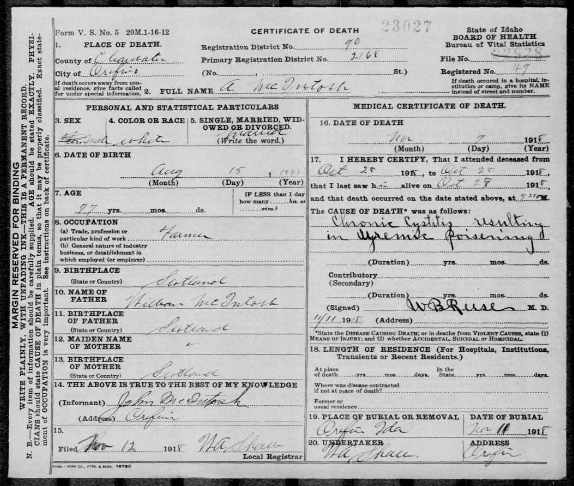 Form V. S. No. 5 20M.1-16-12
CERTIFICATE OF DEATH
23027
State of Idaho
BOARD OF HEALTH
Bureau of Vital Statistics
1. PLACE OF DEATH.
County of Clearwater
City of Orofino
If death occurs away from usual residence, give facts called for under special information.
Registration District No. 90
Primary Registration District No. 2168
(No. St.)
File No.
Registered No. 49
If death occurred in a hospital, institution or camp, give its NAME instead of street and number.
2. FULL NAME A McIntosh
PERSONAL AND STATISTICAL PARTICULARS
3. SEX
4. COLOR OR RACE
white
5. SINGLE, MARRIED, WIDOWED OR DIVORCED.
(Write the word.)
6. DATE OF BIRTH
Aug 15
(Month) (Day) (Year)
7. AGE
77 yrs. mos. ds.
IF LESS than 1 day
how many hrs. or min.?
8. OCCUPATION
(a) Trade, profession or
particular kind of work Farmer
(b) General nature of industry
business, or establishment in
which employed (or employer)
9. BIRTHPLACE
(State or Country) Scotland
10. NAME OF
FATHER William McIntosh
11. BIRTHPLACE
OF FATHER
(State or Country) Scotland
12. MAIDEN NAME
OF MOTHER
13. BIRTHPLACE
OF MOTHER
(State or Country) Scotland
14. THE ABOVE IS TRUE TO THE BEST OF MY KNOWLEDGE
(Informant) John McIntosh
(Address) Orofino
15.
Filed Nov 12 1918 Local Registrar
MEDICAL CERTIFICATE OF DEATH.
16. DATE OF DEATH.
Nov 9 1918
(Month) (Day) (Year)
17. I HEREBY CERTIFY, That I attended deceased from
Oct 25 1918, to Oct 28 1918
that I last saw him alive on Oct 28 1918
and that death occurred on the date stated above, at M.
The CAUSE OF DEATH* was as follows:
Chronic Cystitis resulting
in Uremic poisoning
(Duration) yrs. mos. ds.
Contributory
(Secondary)
(Duration) yrs. mos. ds.
(Signed) M. D.
11/11 1918 (Address)
*State the DISEASE CAUSING DEATH; or in deaths from VIOLENT CAUSES, state (1)
MEANS OF INJURY; and (2) whether ACCIDENTAL, SUICIDAL or HOMICIDAL.
18. LENGTH OF RESIDENCE (For Hospitals, Institutions,
Transients or Recent Residents.)
At place of death, yrs. mos. days. In the State, yrs. mos. days.
Where was disease contracted
if not at place of death?
Former or
usual residence
19. PLACE OF BURIAL OR REMOVAL
Orofino Ida
DATE OF BURIAL
Nov 11 1918
20. UNDERTAKER
ADDRESS
Orofino
MARGIN RESERVED FOR BINDING
WRITE PLAINLY, WITH UNFADING INK—THIS IS A PERMANENT RECORD.
N. B.—Every item of information should be carefully supplied. AGE should be stated EXACTLY. PHYSICIANS should state CAUSE OF DEATH in plain terms, so that it may be properly classified. Exact statement of OCCUPATION is very important. See instructions on back of certificate.